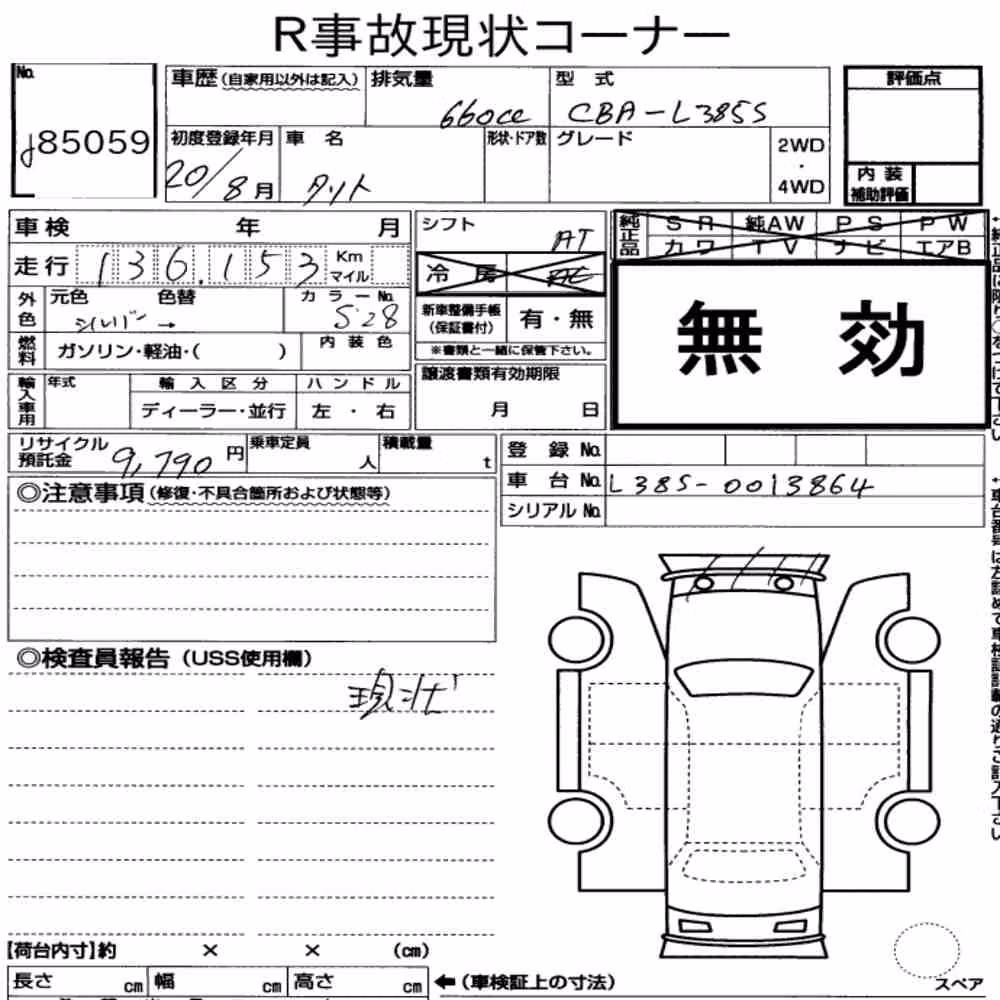 R事故現状コーナー
No.
85059
車歴(自家用以外は記入)
排気量
660cc
型 式
CBA-L385S
初度登録年月
20/8月
車 名
タント
形状・ドア数
グレード
2WD
・
4WD
評価点
内 装
補助評価
車検 年 月
走行 136,153 Km
マイル
外色
元色 色替
シルバー→
カラーNo.
S28
燃料
ガソリン・軽油・( )
内 装 色
輸入車用
年式
輸 入 区 分
ディーラー・並行
ハ ン ド ル
左 ・ 右
シフト
AT
冷 房
AC
新車整備手帳
(保証書付)
有・無
※書類と一緒に保管下さい。
譲渡書類有効期限
月 日
純正品
S R 純AW P S P W
カ ワ T V ナ ビ エアB
無 効
リサイクル
預託金 9,790 円
乗車定員
人
積載量
t
登 録 No.
車 台 No. L385-0013864
シリアル No.
◎注意事項(修復・不具合箇所および状態等)
◎検査員報告(USS使用欄)
現状
【荷台内寸】約 × × (cm)
長さ cm 幅 cm 高さ cm
←(車検証上の寸法)
スペア